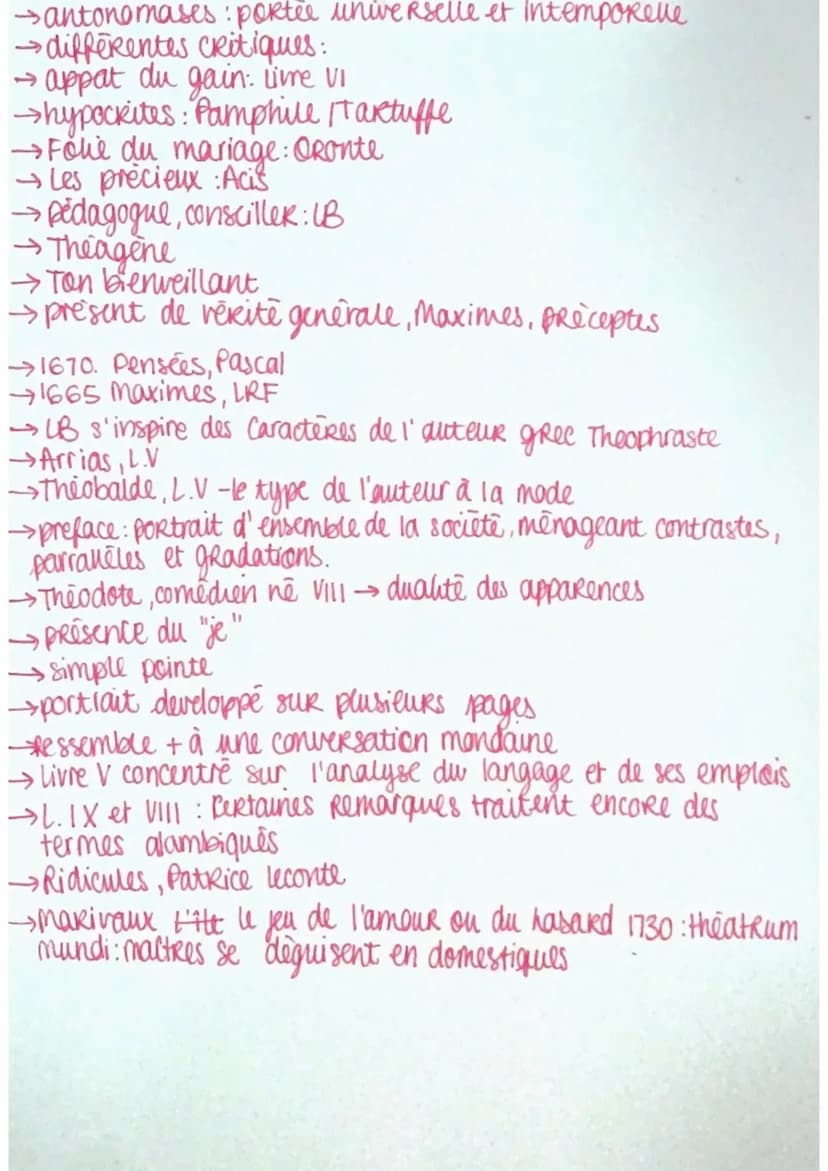 →antonomases : portée universelle et intemporelle
→différentes critiques :
→ appat du gain: Livre VI
→hypocrites : Pamphile / Tartuffe
→Folie du mariage : Oronte
→ Les précieux : Acis
→ pédagogue, consciller : LB
→ Théagène
→ Ton bienveillant
→ présent de vérité générale, Maximes, préceptes
→1670. Pensées, Pascal
→1665 Maximes, LRF
→ LB s'inspire des Caractères de l'auteur grec Theophraste
→Arrias, L.V
→Théobalde, L.V - le type de l'auteur à la mode
→preface : portrait d'ensemble de la société, ménageant contrastes,
parrallèles et gradations.
→Théodote, comédien né VIII → dualité des apparences
→ présence du "je"
→ simple pointe
→portrait developpé sur plusieurs pages
→ressemble + à une conversation mondaine
→ Livre V concentré sur l'analyse du langage et de ses emplois
→L. IX et VIII : Certaines remarques traitent encore des
termes alambiqués
→Ridicules, Patrice Leconte
→Marivaux le jeu de l'amour ou du hasard 1730 : théatrum
mundi : maîtres se déguisent en domestiques